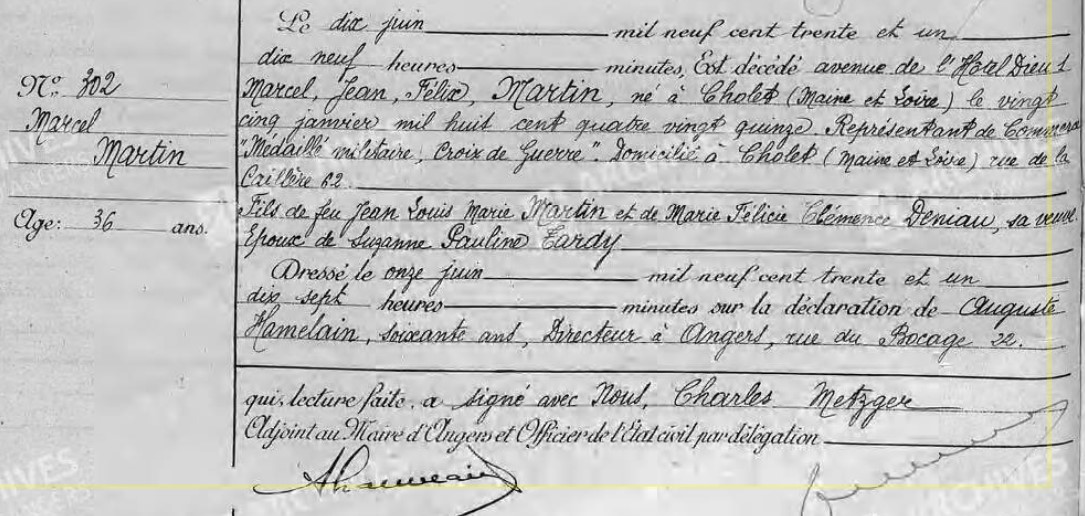 Le dix juin mil neuf cent trente et un
dix neuf heures minutes, Est décédé avenue de l'Hôtel Dieu 1
Nº 302
Marcel, Jean, Félix, Martin, né à Cholet (Maine et Loire) le vingt
Marcel
cinq janvier mil huit cent quatre vingt quinze. Représentant de Commerce
Martin
"Médaillé militaire, Croix de Guerre". Domicilié à Cholet (Maine et Loire) rue de la
Caillère 62.
Age: 36 ans.
Fils de feu Jean Louis Marie Martin et de Marie Félicie Clémence Deniau, sa veuve
Epoux de Suzanne Pauline Tardy
Dressé le onze juin mil neuf cent trente et un
dix sept heures minutes sur la déclaration de Auguste
Hamelain, soixante ans, Directeur à Angers, rue du Bocage 22.
qui, lecture faite, a signé avec Nous, Charles Metzger
Adjoint au Maire d'Angers et Officier de l'Etat civil par délégation